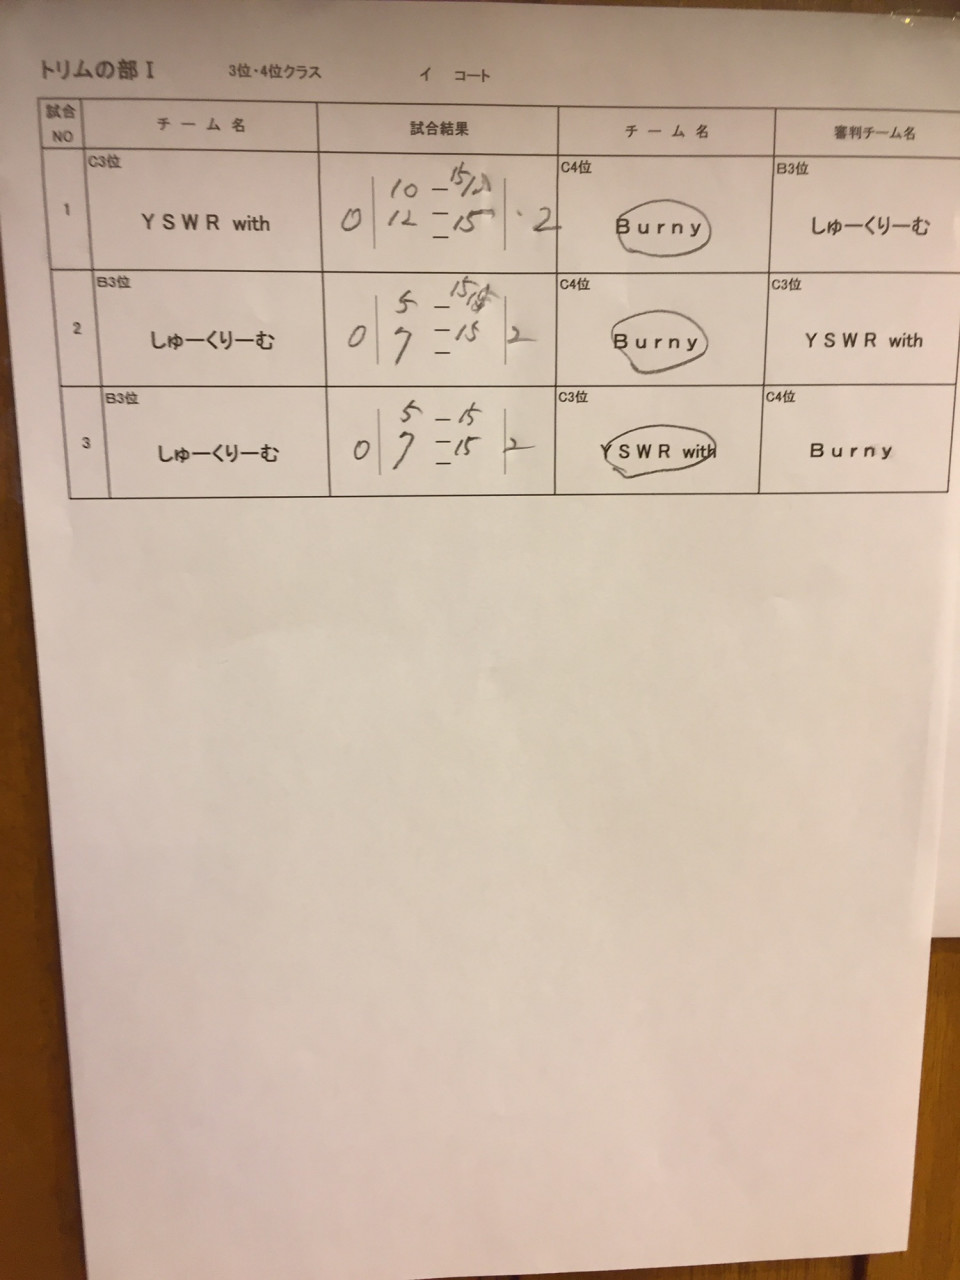 トリムの部 Ⅰ 3位・4位クラス イ コート
試合NO チーム名 試合結果 チーム名 審判チーム名
C3位 C4位 B3位
1 YSWR with 0 10 - 15 2 Burny しゅーくりーむ
12 - 15
-
B3位 C4位 C3位
2 しゅーくりーむ 0 5 - 15 2 Burny YSWR with
7 - 15
-
B3位 C3位 C4位
3 しゅーくりーむ 0 5 - 15 2 YSWR with Burny
7 - 15
-